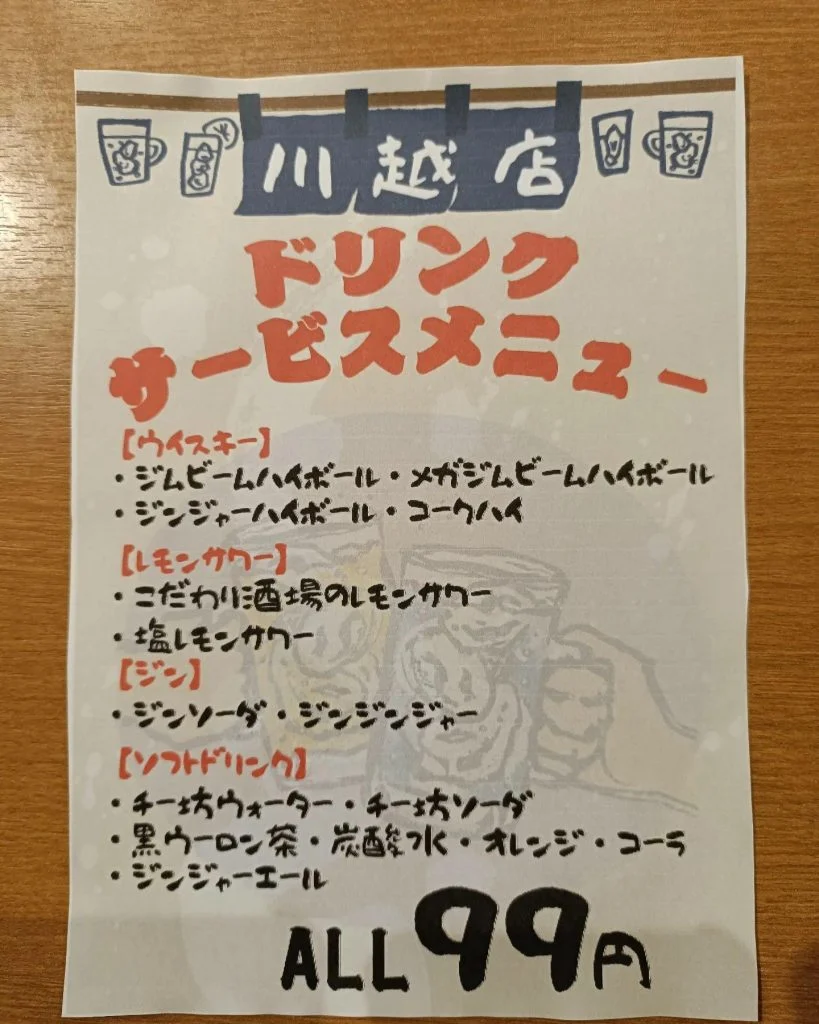 川越店
ドリンク
サービスメニュー
【ウイスキー】
・ジムビームハイボール・メガジムビームハイボール
・ジンジャーハイボール・コークハイ
【レモンサワー】
・こだわり酒場のレモンサワー
・塩レモンサワー
【ジン】
・ジンソーダ・ジンジンジャー
【ソフトドリンク】
・チー坊ウォーター・チー坊ソーダ
・黒ウーロン茶・炭酸水・オレンジ・コーラ
・ジンジャーエール
ALL99円